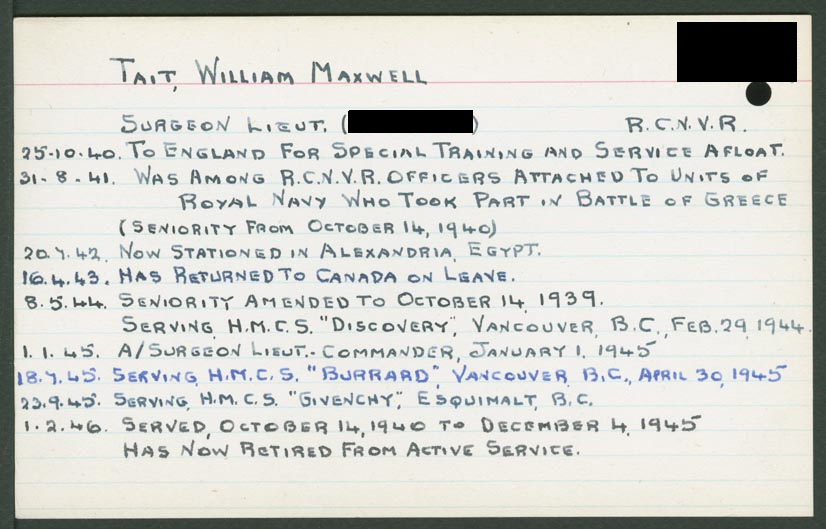 TAIT, WILLIAM MAXWELL
SURGEON LIEUT. ( ) R.C.N.V.R.
25-10-40. TO ENGLAND FOR SPECIAL TRAINING AND SERVICE AFLOAT.
31-8-41. WAS AMONG R.C.N.V.R. OFFICERS ATTACHED TO UNITS OF
ROYAL NAVY WHO TOOK PART IN BATTLE OF GREECE
(SENIORITY FROM OCTOBER 14, 1940)
20.7.42. NOW STATIONED IN ALEXANDRIA, EGYPT.
16.4.43. HAS RETURNED TO CANADA ON LEAVE.
8.5.44. SENIORITY AMENDED TO OCTOBER 14, 1939.
SERVING, H.M.C.S. "DISCOVERY", VANCOUVER, B.C., FEB. 29, 1944.
1.1.45. A/SURGEON LIEUT.-COMMANDER, JANUARY 1, 1945
18.7.45. SERVING, H.M.C.S. "BURRARD", VANCOUVER, B.C., APRIL 30, 1945
23.9.45. SERVING, H.M.C.S. "GIVENCHY", ESQUIMALT, B.C.
1.2.46. SERVED, OCTOBER 14, 1940 TO DECEMBER 4, 1945
HAS NOW RETIRED FROM ACTIVE SERVICE.